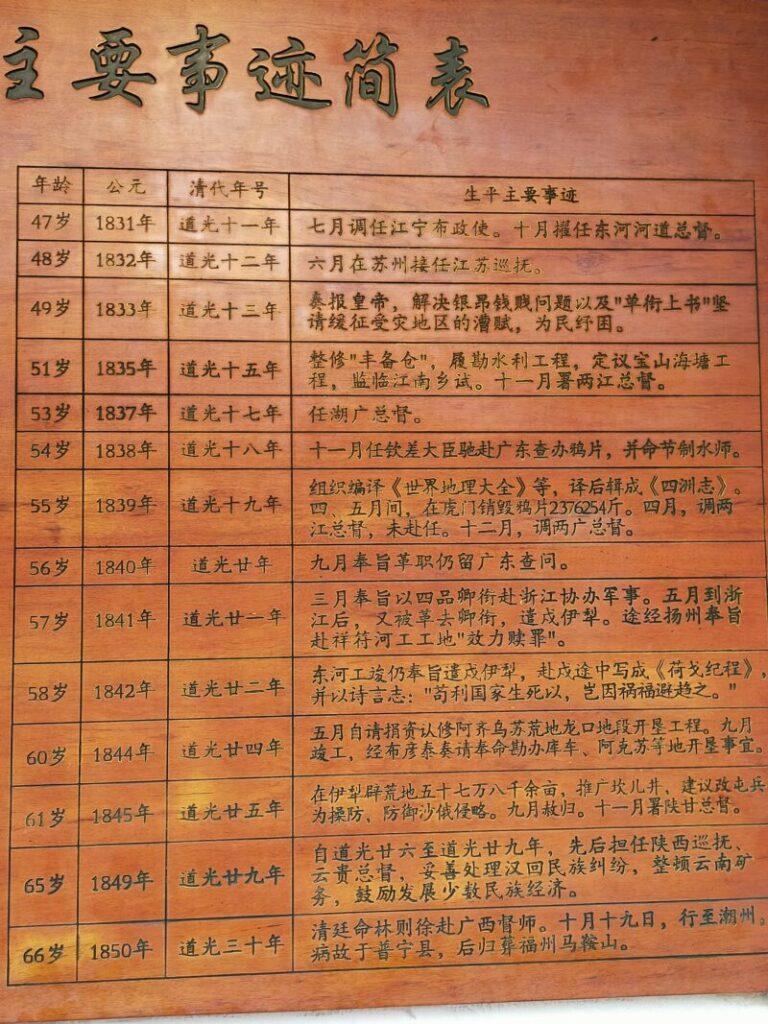 主要事迹简表
年龄 公元 清代年号 生平主要事迹
47岁 1831年 道光十一年 七月调任江宁布政使。十月擢任东河河道总督。
48岁 1832年 道光十二年 六月在苏州接任江苏巡抚。
49岁 1833年 道光十三年 奏报皇帝，解决银昂钱贱问题以及"单衔上书"坚
请缓征受灾地区的漕赋，为民纾困。
51岁 1835年 道光十五年 整修"丰备仓"，履勘水利工程，定议宝山海塘工
程，监临江南乡试。十一月署两江总督。
53岁 1837年 道光十七年 任湖广总督。
54岁 1838年 道光十八年 十一月任钦差大臣驰赴广东查办鸦片，并命节制水师。
55岁 1839年 道光十九年 组织编译《世界地理大全》等，译后辑成《四洲志》。
四、五月间，在虎门销毁鸦片2376254斤。四月，调两
江总督，未赴任。十二月，调两广总督。
56岁 1840年 道光廿年 九月奉旨革职仍留广东查问。
57岁 1841年 道光廿一年 三月奉旨以四品卿衔赴浙江协办军事。五月到浙
江后，又被革去卿衔，遣戍伊犁。途经扬州奉旨
赴祥符河工工地"效力赎罪"。
58岁 1842年 道光廿二年 东河工竣仍奉旨遣戍伊犁，赴戍途中写成《荷戈纪程》，
并以诗言志："苟利国家生死以，岂因祸福避趋之。"
60岁 1844年 道光廿四年 五月自请捐资认修阿齐乌苏荒地龙口地段开垦工程。九月
竣工，经布彦泰奏请奉命勘办库车、阿克苏等地开垦事宜。
61岁 1845年 道光廿五年 在伊犁辟荒地五十七万八千余亩，推广坎儿井，建议改屯兵
为操防、防御沙俄侵略。九月赦归。十一月署陕甘总督。
65岁 1849年 道光廿九年 自道光廿六至道光廿九年，先后担任陕西巡抚、
云贵总督，妥善处理汉回民族纠纷，整顿云南矿
务，鼓励发展少数民族经济。
66岁 1850年 道光三十年 清廷命林则徐赴广西督师。十月十九日，行至潮州。
病故于普宁县，后归葬福州马鞍山。